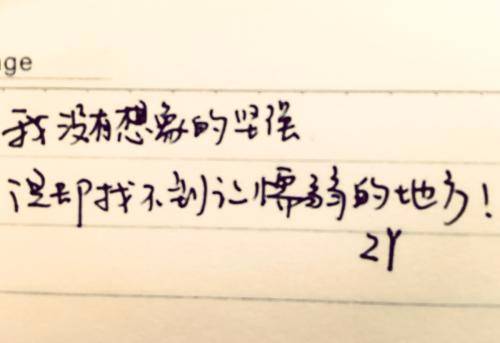 ge
我没有想象的坚强
但却找不到让懦弱的地方！
ZY